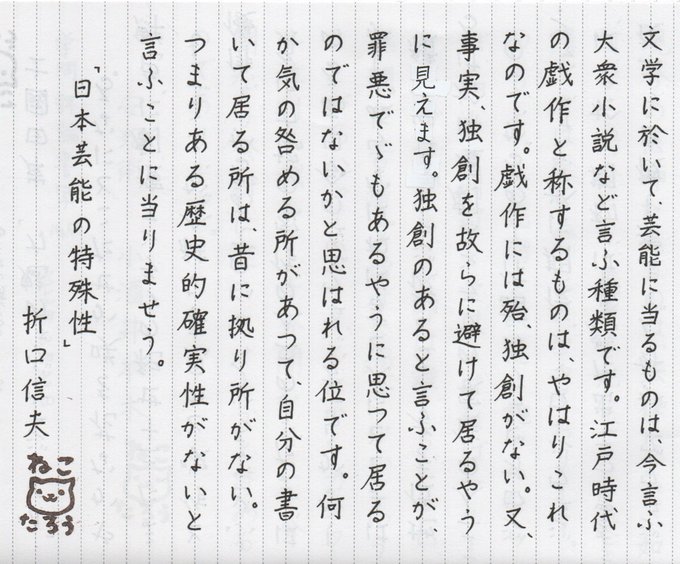 文学に於いて、芸能に当るものは、今言ふ
大衆小説など言ふ種類です。江戸時代
の戯作と称するものは、やはりこれ
なのです。戯作には殆、独創がない。又、
事実、独創を故らに避けて居るやう
に見えます。独創のあると言ふことが、
罪悪でゞもあるやうに思つて居る
のではないかと思はれる位です。何
か気の咎める所があつて、自分の書
いて居る所は、昔に拠り所がない。
つまりある歴史的確実性がないと
言ふことに当りませう。
「日本芸能の特殊性」
折口信夫
ねこ
たろう